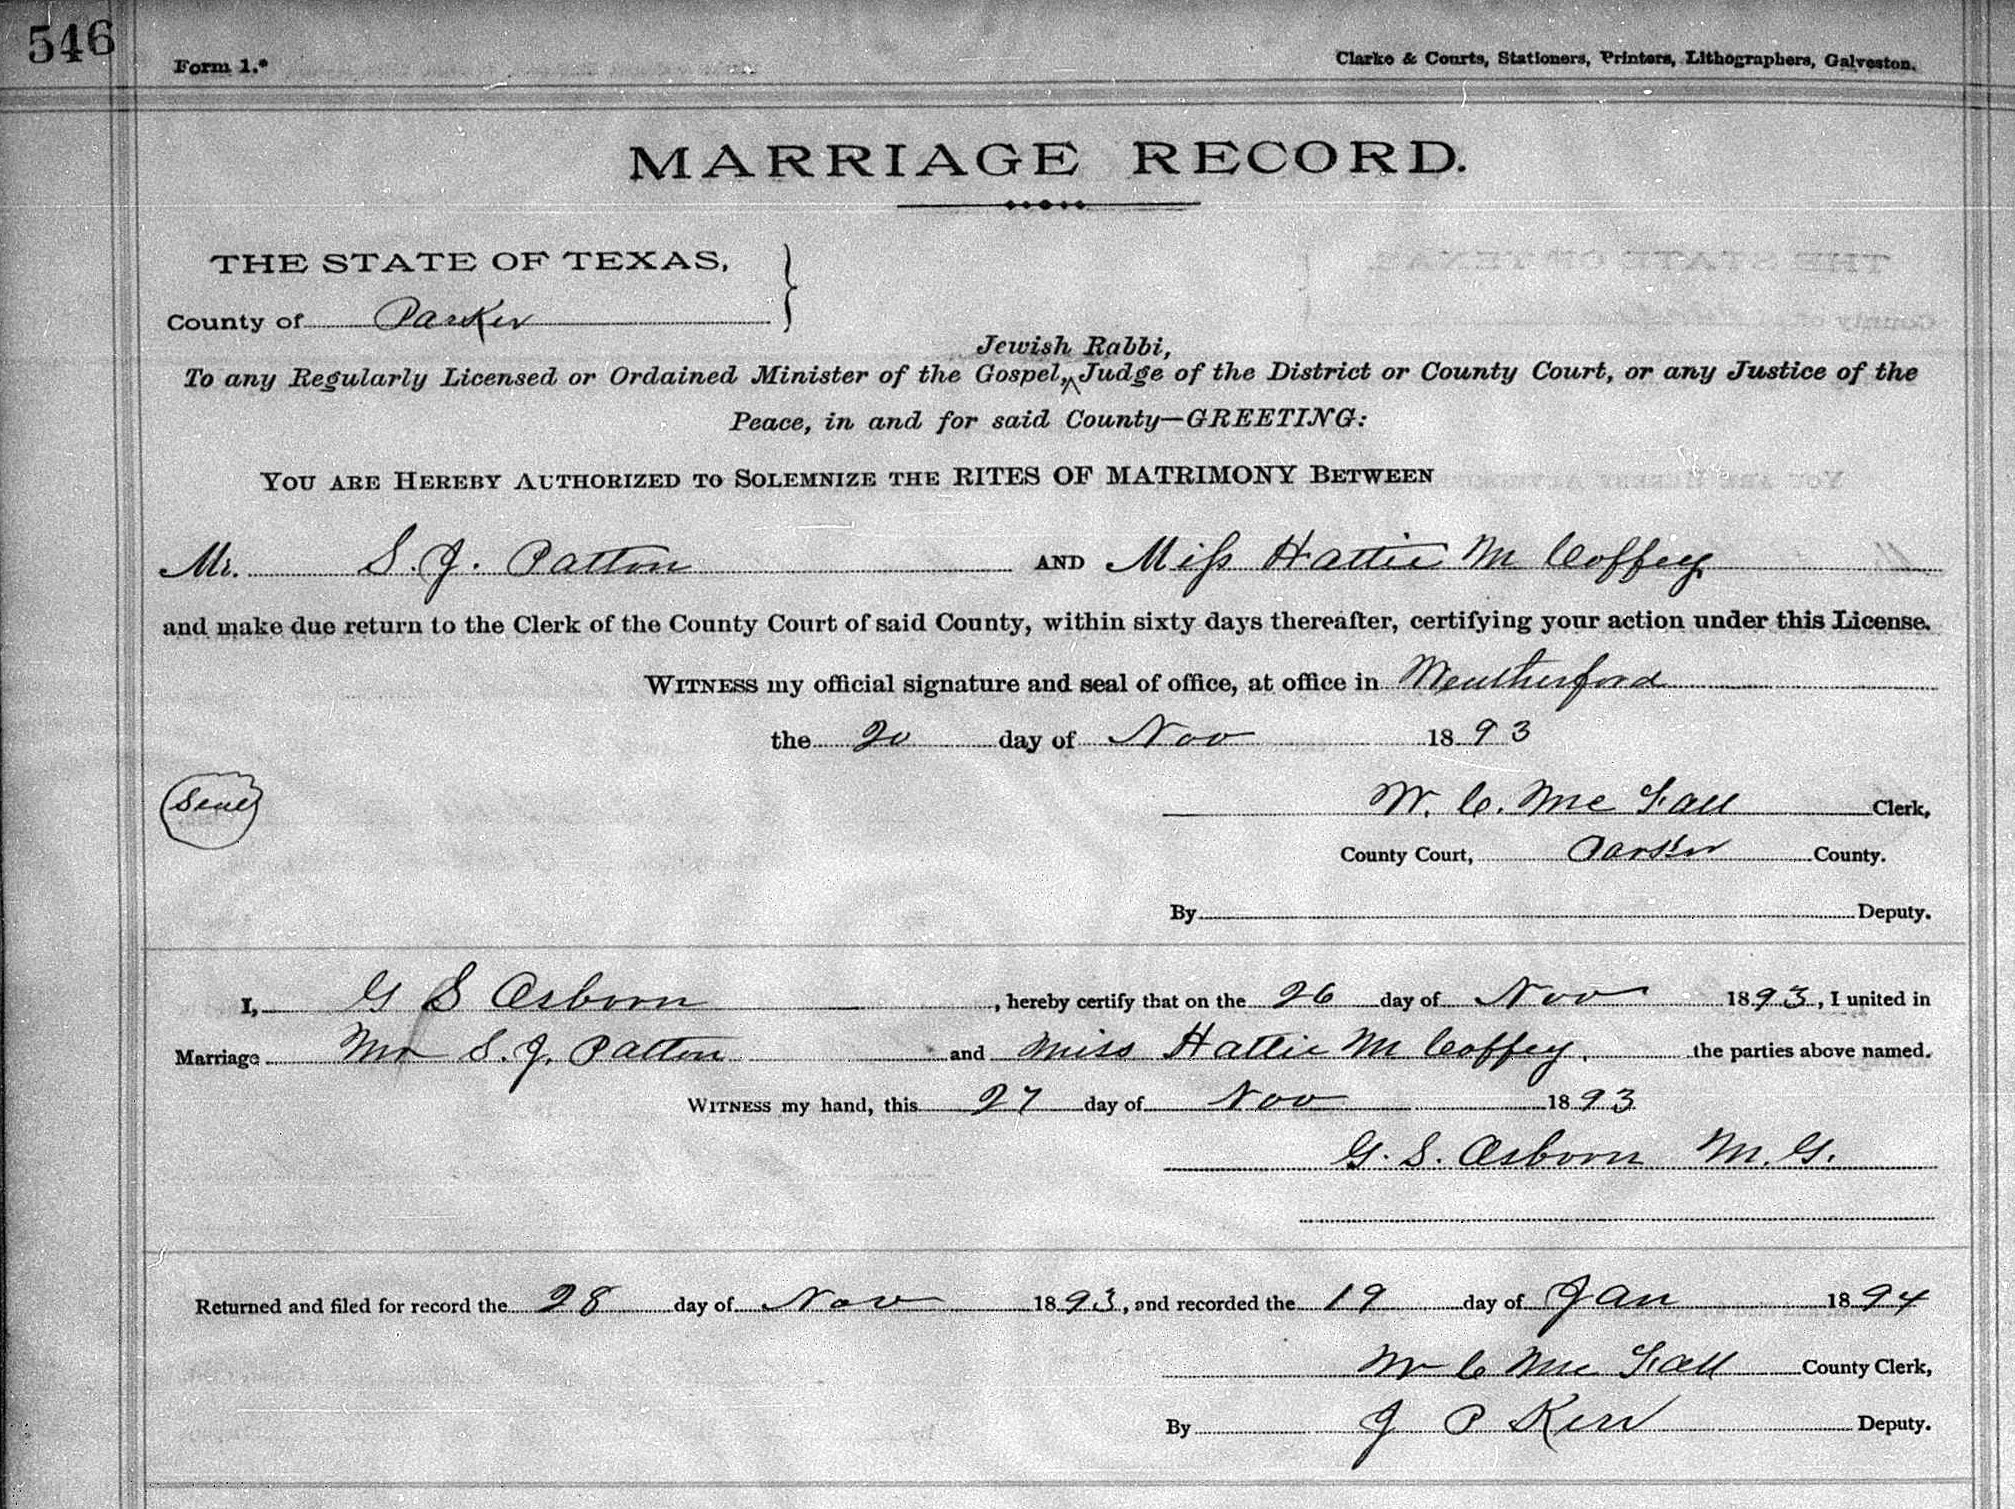 546
Form 1.*
Clarke & Courts, Stationers, Printers, Lithographers, Galveston.
MARRIAGE RECORD.
THE STATE OF TEXAS,
County of Parker
Jewish Rabbi,
To any Regularly Licensed or Ordained Minister of the Gospel, Judge of the District or County Court, or any Justice of the
Peace, in and for said County—GREETING:
YOU ARE HEREBY AUTHORIZED TO SOLEMNIZE THE RITES OF MATRIMONY BETWEEN
Mr. S. J. Patton AND Miss Hattie M Coffey
and make due return to the Clerk of the County Court of said County, within sixty days thereafter, certifying your action under this License.
WITNESS my official signature and seal of office, at office in Weatherford
the 20 day of Nov 1893
Seal
W. C. McFall Clerk,
County Court, Parker County.
By Deputy.
I, G S Osborn, hereby certify that on the 26 day of Nov 1893, I united in
Marriage Mr S. J. Patton and Miss Hattie M Coffey. the parties above named.
WITNESS my hand, this 27 day of Nov 1893
G. S. Osborn M. G.
Returned and filed for record the 28 day of Nov 1893, and recorded the 19 day of Jan 1894
W C McFall County Clerk,
By J P Kerr Deputy.